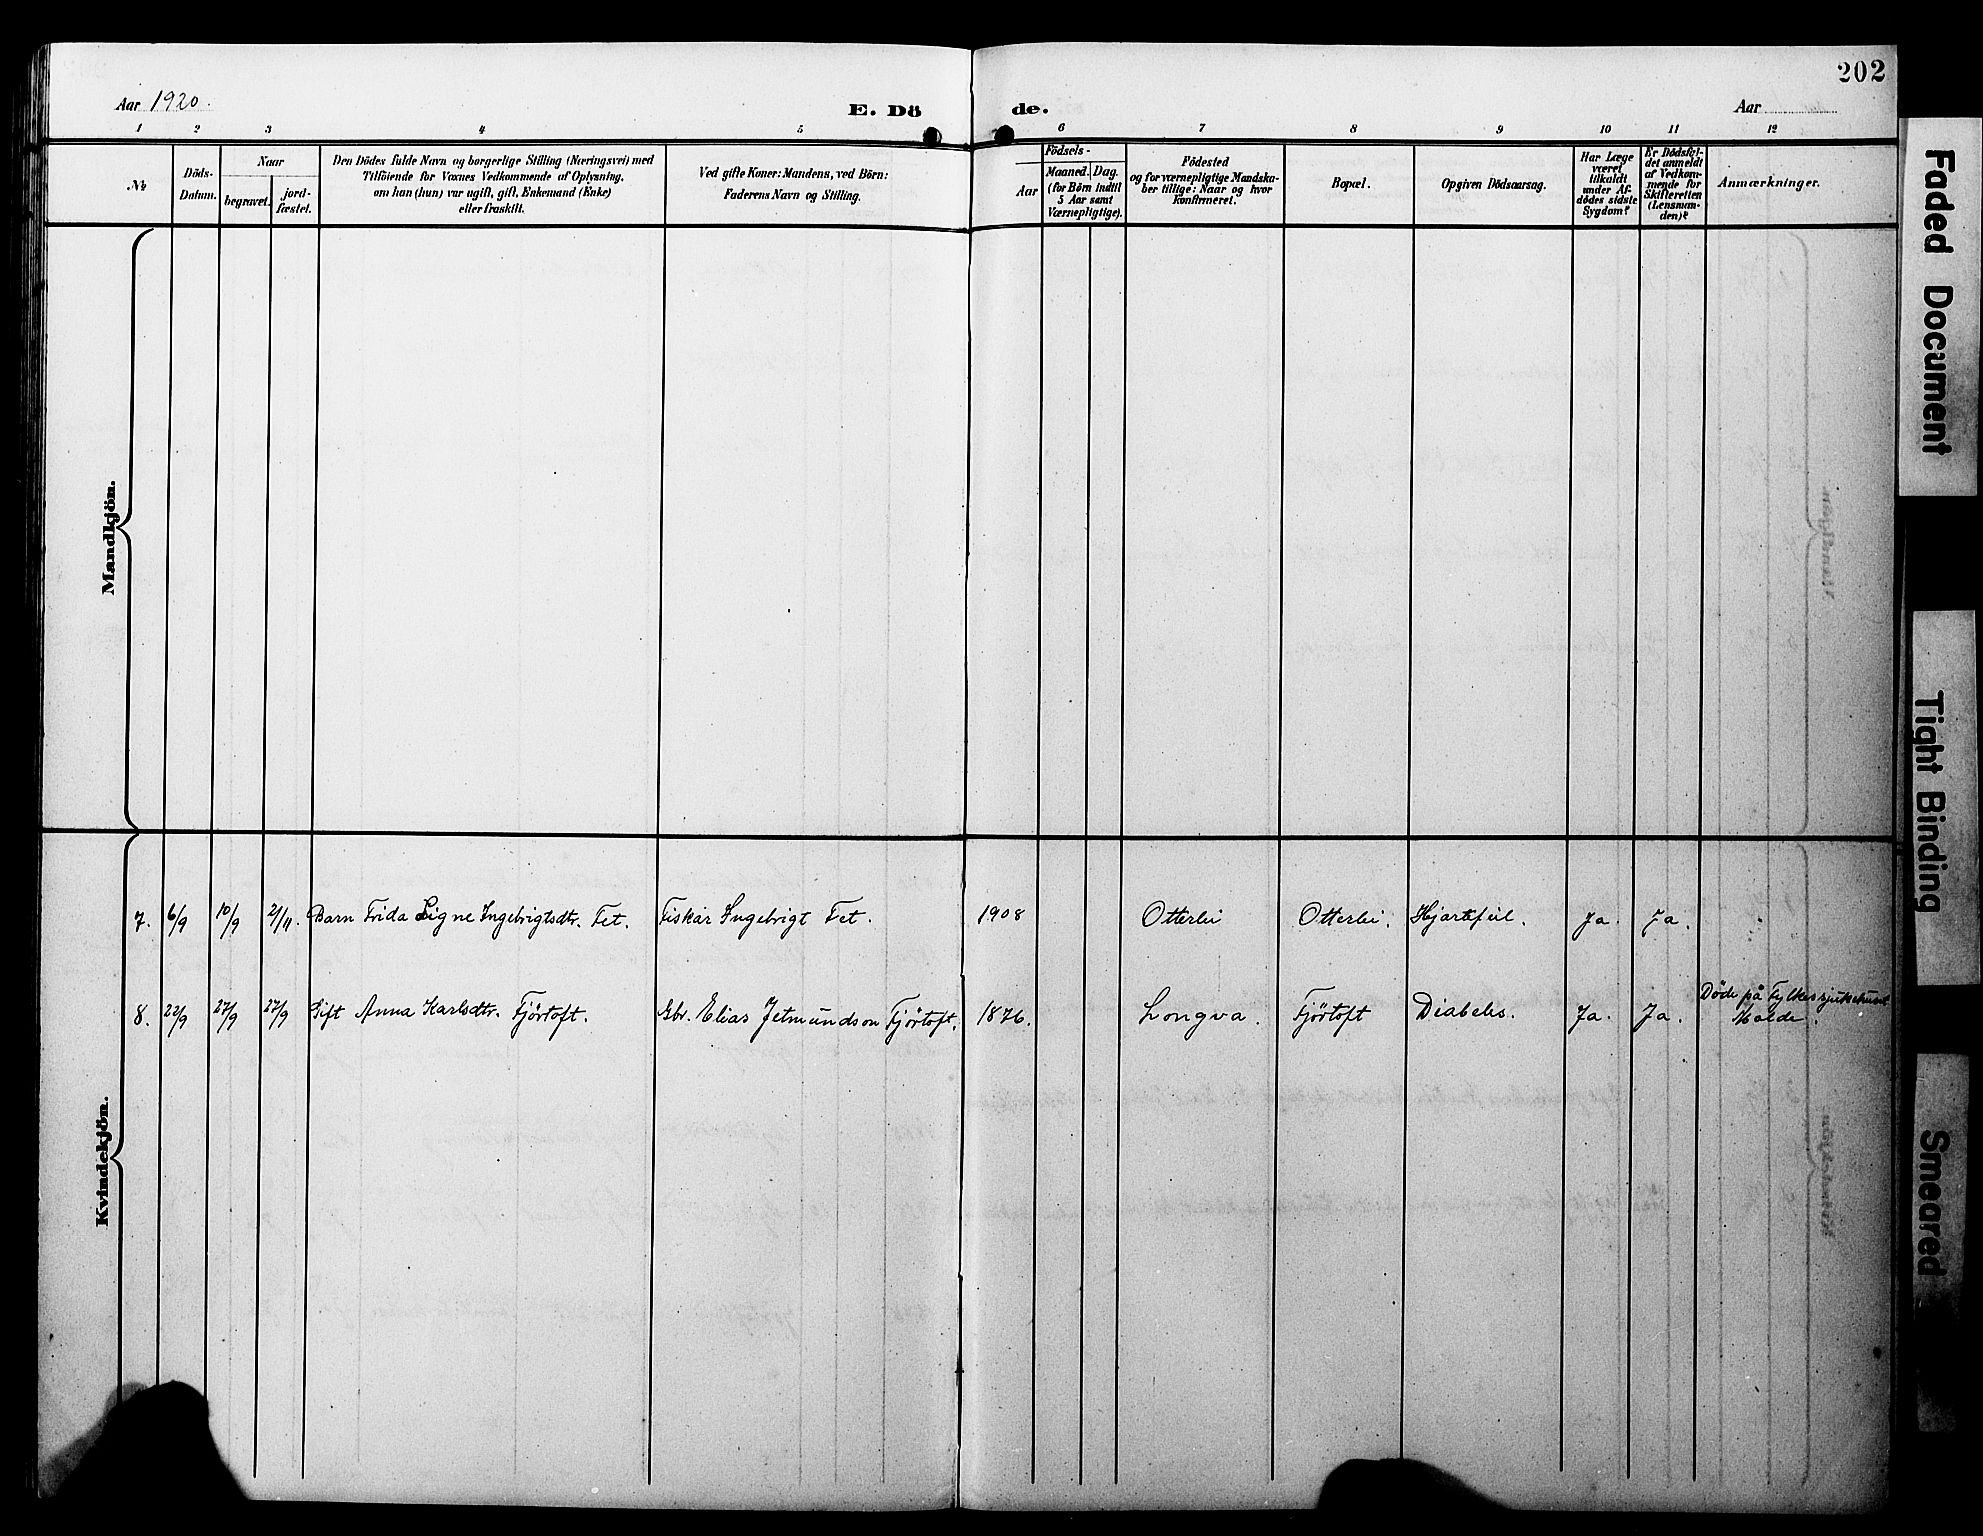 202
Aar 1920.
E. Dö de.
Aar
1 2 3 4 5 6 7 8 9 10 11 12
No
Döds-
Datum.
Naar
begravet.
jord-
fæstet.
Den Dödes fulde Navn og borgerlige Stilling (Næringsvei) med
Tilföiende for Voxnes Vedkommende af Oplysning,
om han (hun) var ugift, gift, Enkemand (Enke)
eller fraskilt.
Ved gifte Koner: Mandens, ved Börn:
Faderens Navn og Stilling.
Födsels-
Aar
Maaned. Dag.
(for Börn indtil
5 Aar samt
Værnepligtige).
Födested
og for værnepligtige Mandska-
ber tillige: Naar og hvor
konfirmeret.
Bopæl.
Opgiven Dödsaarsag.
Har Læge
været
tilkaldt
under Af-
dödes sidste
Sygdom?
Er Dödsfal-
det anmeldt
af Vedkom-
mende for
Skifteretten
(Lensman-
den)?
Anmærkninger.
Mandkjön.
7. 6/9 10/9 2/11 Barn Frida Signe Ingebrigtsdtr. Fet. Fiskar Ingebrigt Fet. 1908 Otterlei Otterlei. Hjartefeil. Ja. Ja.
8. 22/9 27/9 27/9 Gift Anna Karlsdtr. Fjörtoft. Gbr. Elias Jetmundson Fjörtoft. 1876. Longva. Fjörtoft Diabetes. Ja. Ja. Döde på Fylkessjukehuset
Molde.
Kvindekjön.
Faded Document
Tight Binding
Smeared